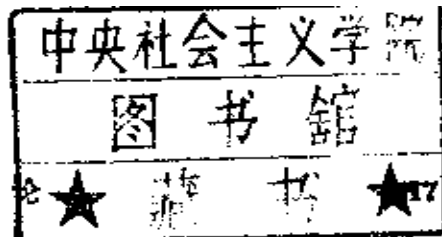 中央社会主义学院
图书馆
★ 藏书 ★